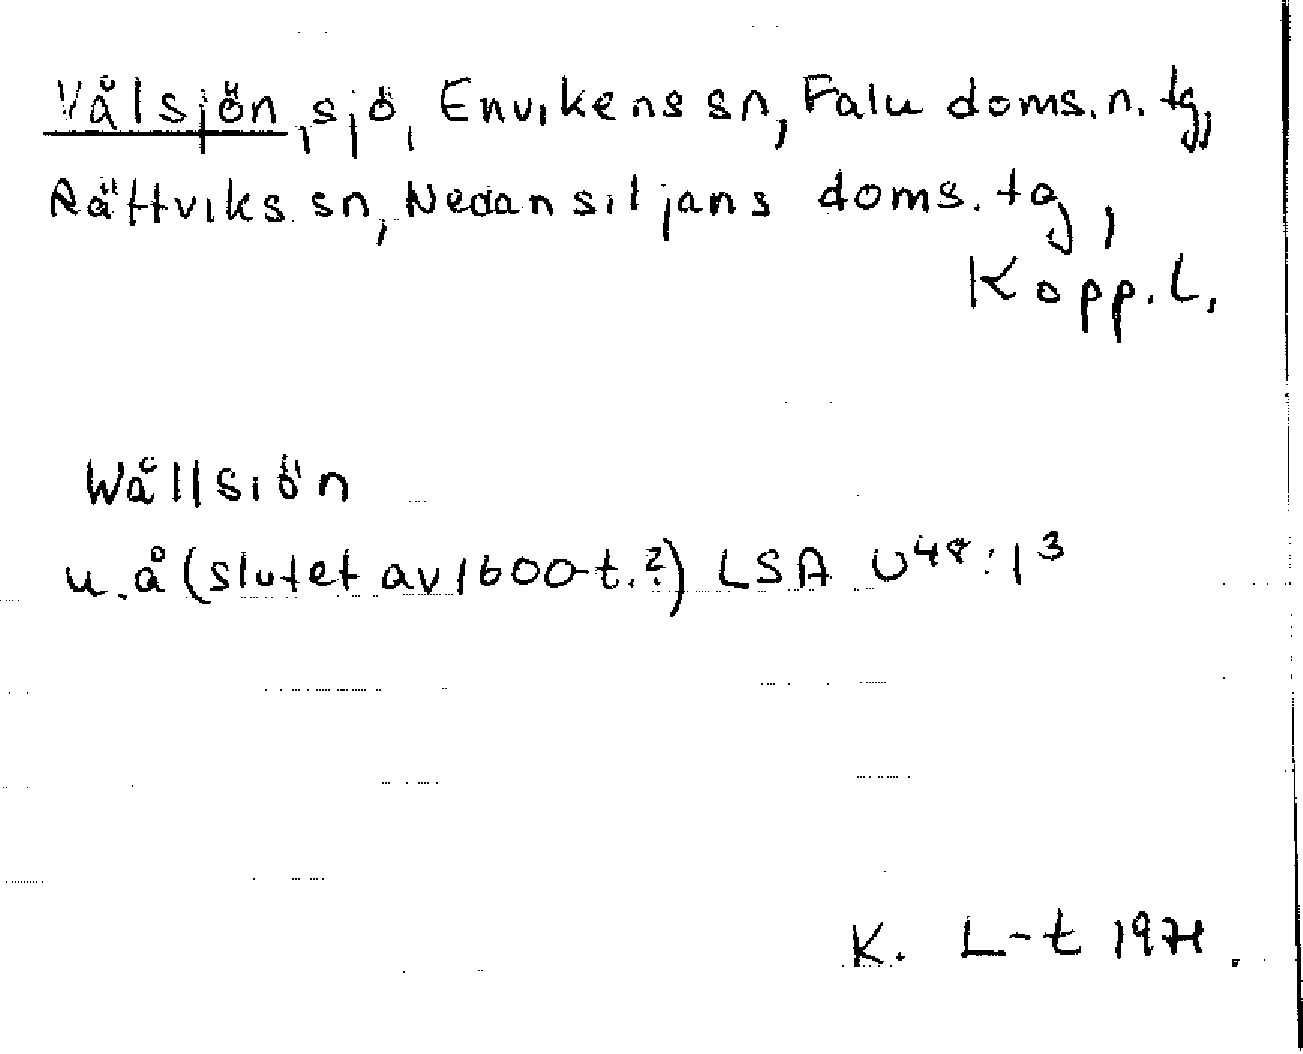 Vålsjön, sjö, Envikens sn, Falu doms. n. tg,
Rättviks sn, Nedansiljans doms. tg,
Kopp. L.
Wållsiön
u. å (slutet av 1600-t.?) LSA U48:1³
K. L-t 1971.